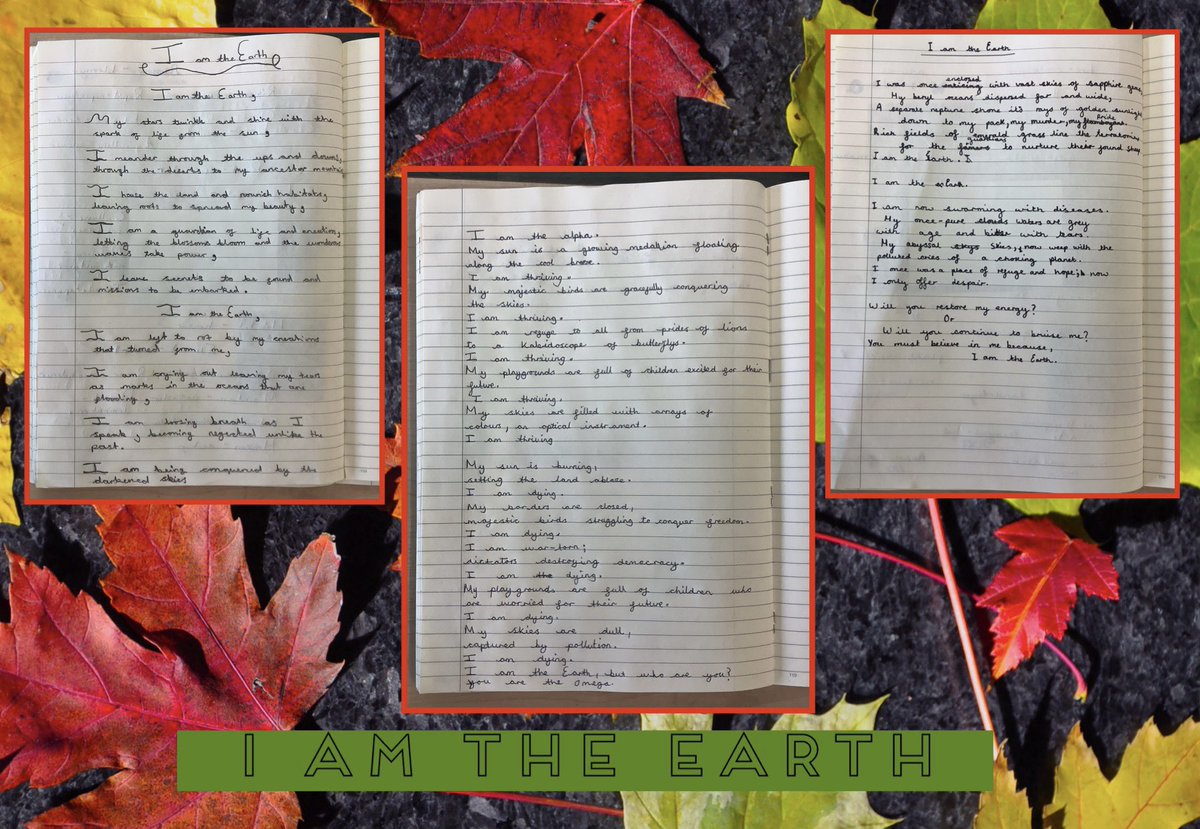 I am the Earth
I am the Earth,
My stars twinkle and shine with the
spark of life from the sun,
I meander through the ups and downs,
through the deserts to my ancestor mountains
I house the land and nourish habitats,
leaving roots to spread my beauty,
I am a guardian of life and creation,
letting the blossoms bloom and the wondrous
waves take power,
I leave secrets to be found and
missions to be embarked.
I am the Earth,
I am left to rot by my creations
that turned from me,
I am crying out leaving my tears
as marks in the oceans that are
flooding,
I am loosing breath as I
speak, becoming neglected unlike the
past.
I am being conquered by the
darkened skies
I am the alpha.
My sun is a glowing medallion floating
along the cool breeze.
I am thriving.
My majestic birds are gracefully conquering
the skies.
I am thriving.
I am refuge to all from prides of lions
to a kaleidoscope of butterflys.
I am thriving.
My playgrounds are full of children excited for their
future.
I am thriving.
My skies are filled with arrays of
colours, an optical instrument.
I am thriving
My sun is burning,
setting the land ablaze.
I am dying.
My borders are closed,
majestic birds struggling to conquer freedom.
I am dying.
I am war-torn;
dictators destroying democracy.
I am the dying.
My playgrounds are full of children who
are worried for their future.
I am dying.
My skies are dull,
captured by pollution.
I am dying.
I am the Earth, but who are you?
You are the Omega.
I am the Earth
I was once enclosed with vast skies of sapphire
My beryl means dispersed far and wide,
A separate neptune shone it's rays of golden sunlight
down to my pack, my murder, my Pride
Rich fields of emerald grass line the
for the guardians to nurture their found sheep.
I am the Earth.
I am the Earth.
I am now swarming with diseases.
My once-pure waters are grey
with age and bitter with tears.
My abyssal skies, now weep with the
polluted cries of a choking planet.
I once was a place of refuge and hope, now
I only offer despair.
Will you restore my energy?
Or
Will you continue to bruise me?
You must believe in me because,
I am the Earth.
I AM THE EARTH